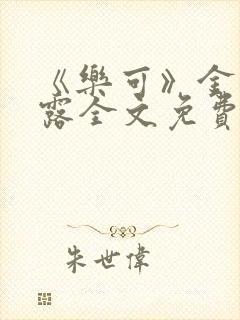 《樂可》金
露全文免費
朱世偉